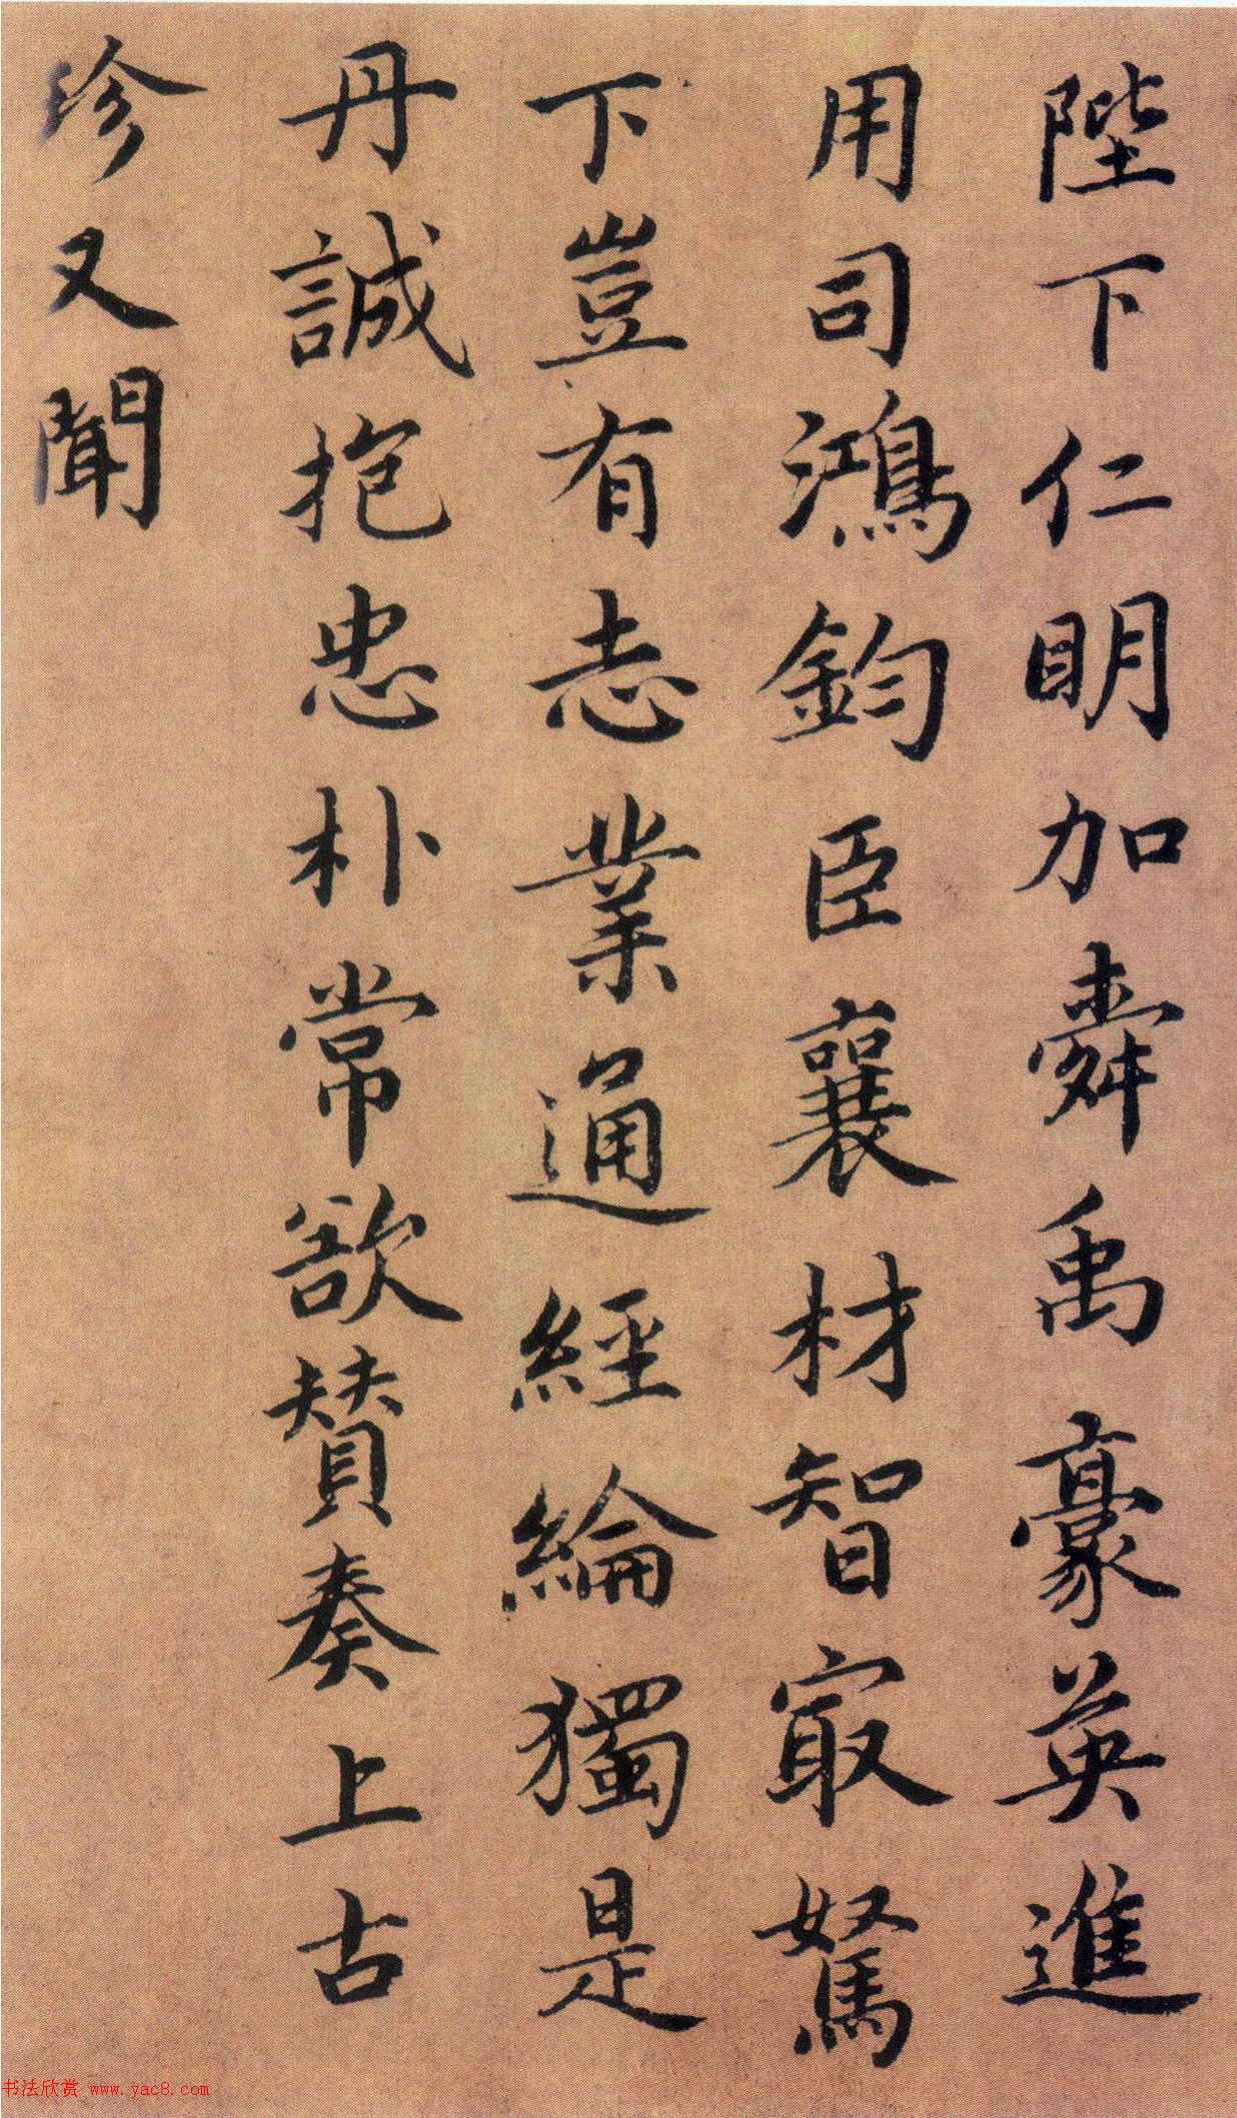 陛下仁明加舜禹豪英進
用司鴻鈞臣襄材智最駑
下豈有志業通經綸獨是
丹誠抱忠朴常欲贊奏上古
珍又聞
书法欣赏 www.yac8.com